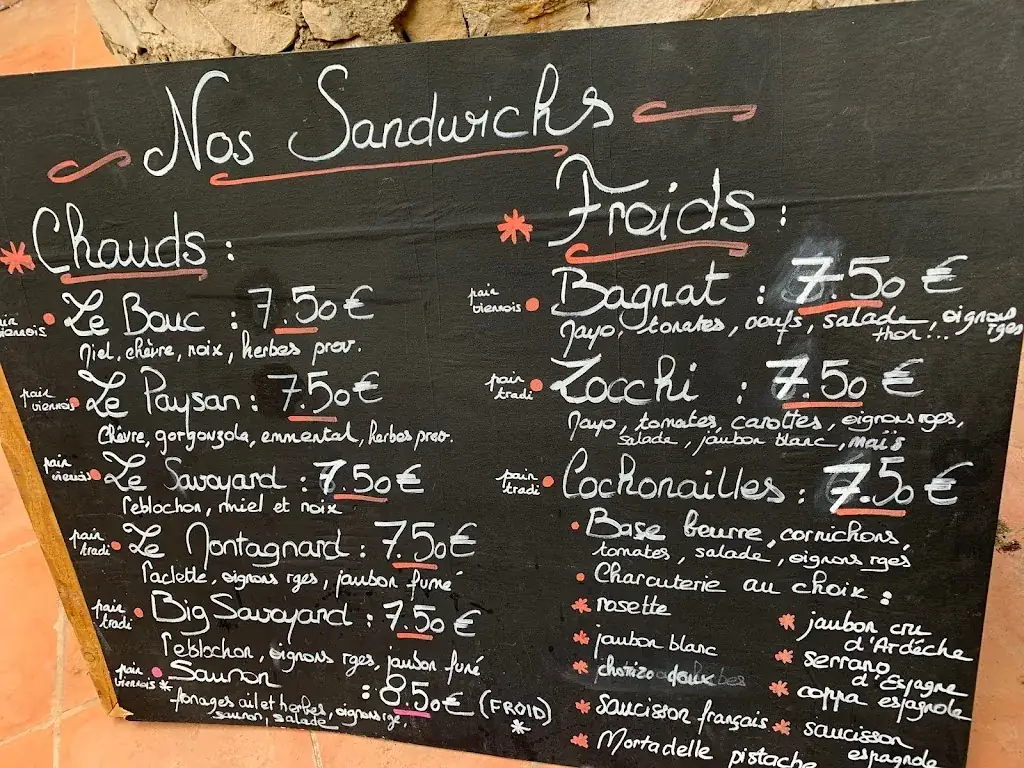 Nos Sandwichs
* Chauds :
pain viennois • Le Bouc : 7.50€
Miel, chèvre, noix, herbes prov.
pain viennois • Le Paysan : 7.50€
Chèvre, gorgonzola, emmental, herbes prov.
pain viennois • Le Savoyard : 7.50€
reblochon, miel et noix
pain tradi • Le Montagnard : 7.50€
raclette, oignons rges, jambon fumé
pain tradi • Big Savoyard : 7.50€
reblochon, oignons rges, jambon fumé
pain viennois * • Saumon : 8.50€ (FROID) *
fromages ail et herbes, oignons rge,
saumon, salade
* Froids :
pain viennois • Bagnat : 7.50€
Mayo, tomates, oeufs, salade, oignons rges
thon...
pain tradi • Zocchi : 7.50€
Mayo, tomates, carottes, oignons rges,
salade, jambon blanc, maïs
pain tradi • Cochonailles : 7.50€
• Base beurre, cornichons,
tomates, salade, oignons rges
• Charcuterie au choix :
* rosette
* jambon blanc
* chorizo doux
* saucisson français
* Mortadelle pistache
* jambon cru
d'Ardèche
* serrano
d'Espagne
* coppa espagnole
* saucisson
espagnole